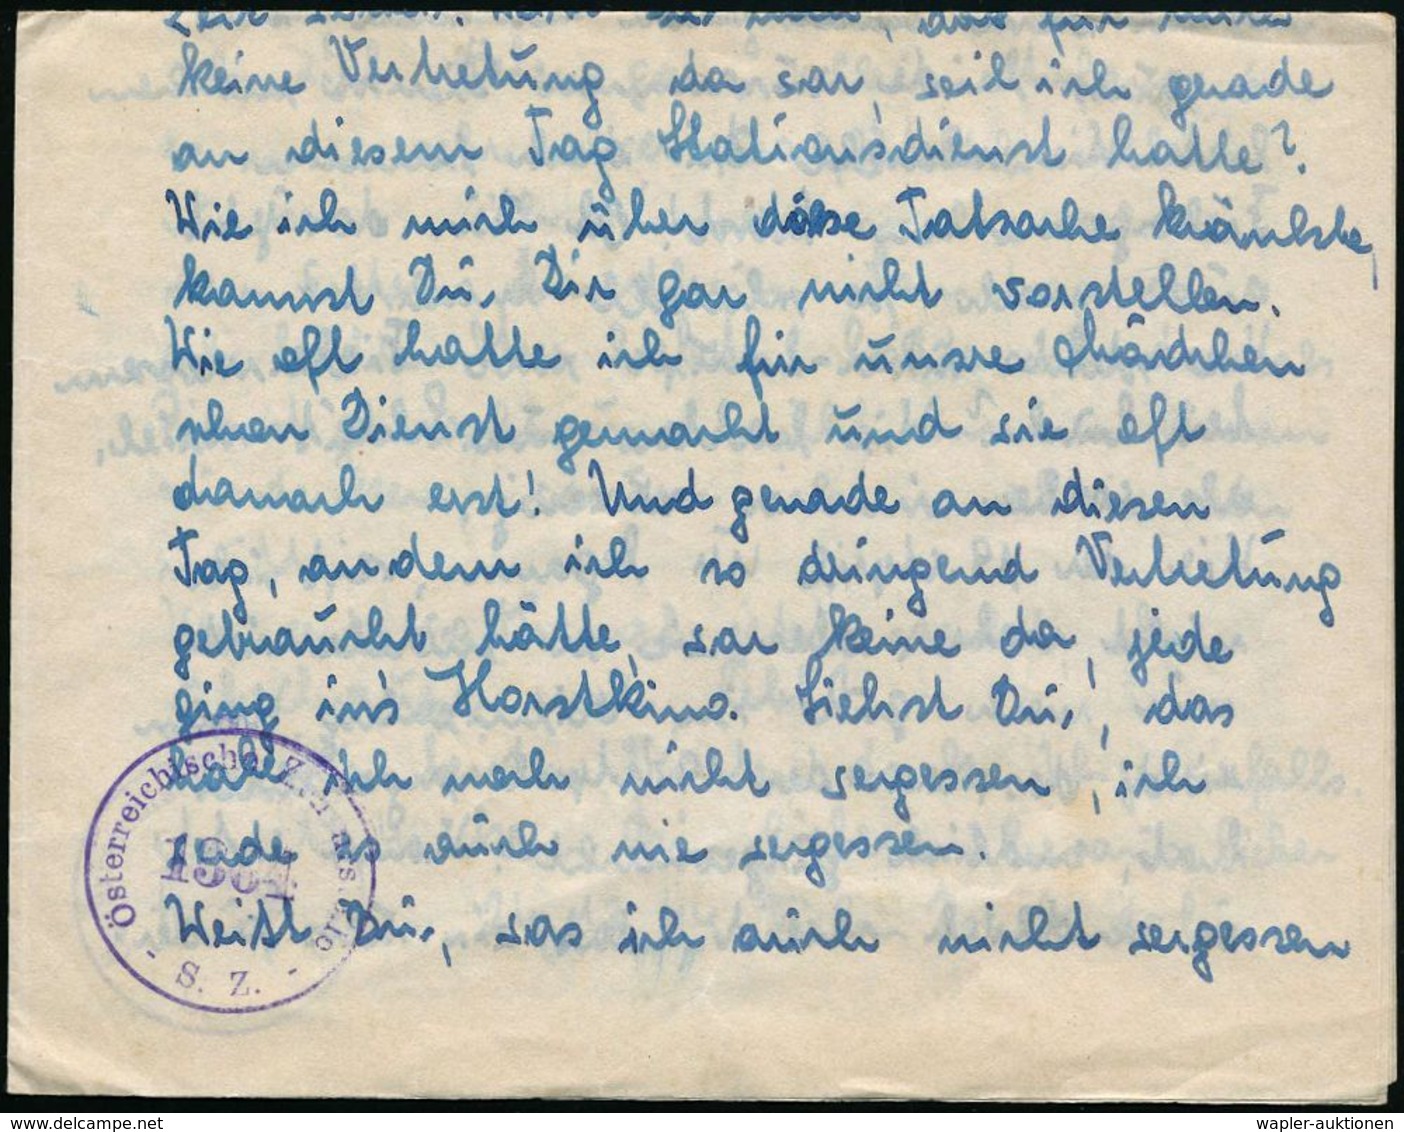 keine Vertretung da war, weil ich gerade
an diesem Tag Stationsdienst hatte?
Wie ich mich über diese Tatsache kränkte,
kannst Du, Dir gar nicht vorstellen.
Wie oft hatte ich für unsre Mädchen
schon Dienst gemacht und sie oft
danach erst! Und gerade an diesen
Tag, an dem ich so dringend Vertretung
gebraucht hätte, war keine da, jede
ging in's Horstkino. Siehst Du, das
habe ich noch nicht vergessen, ich
werde es auch nie vergessen.
Weißt Du, was ich auch nicht vergessen
Österreichische
1304
S. Z.
wapler-auktionen